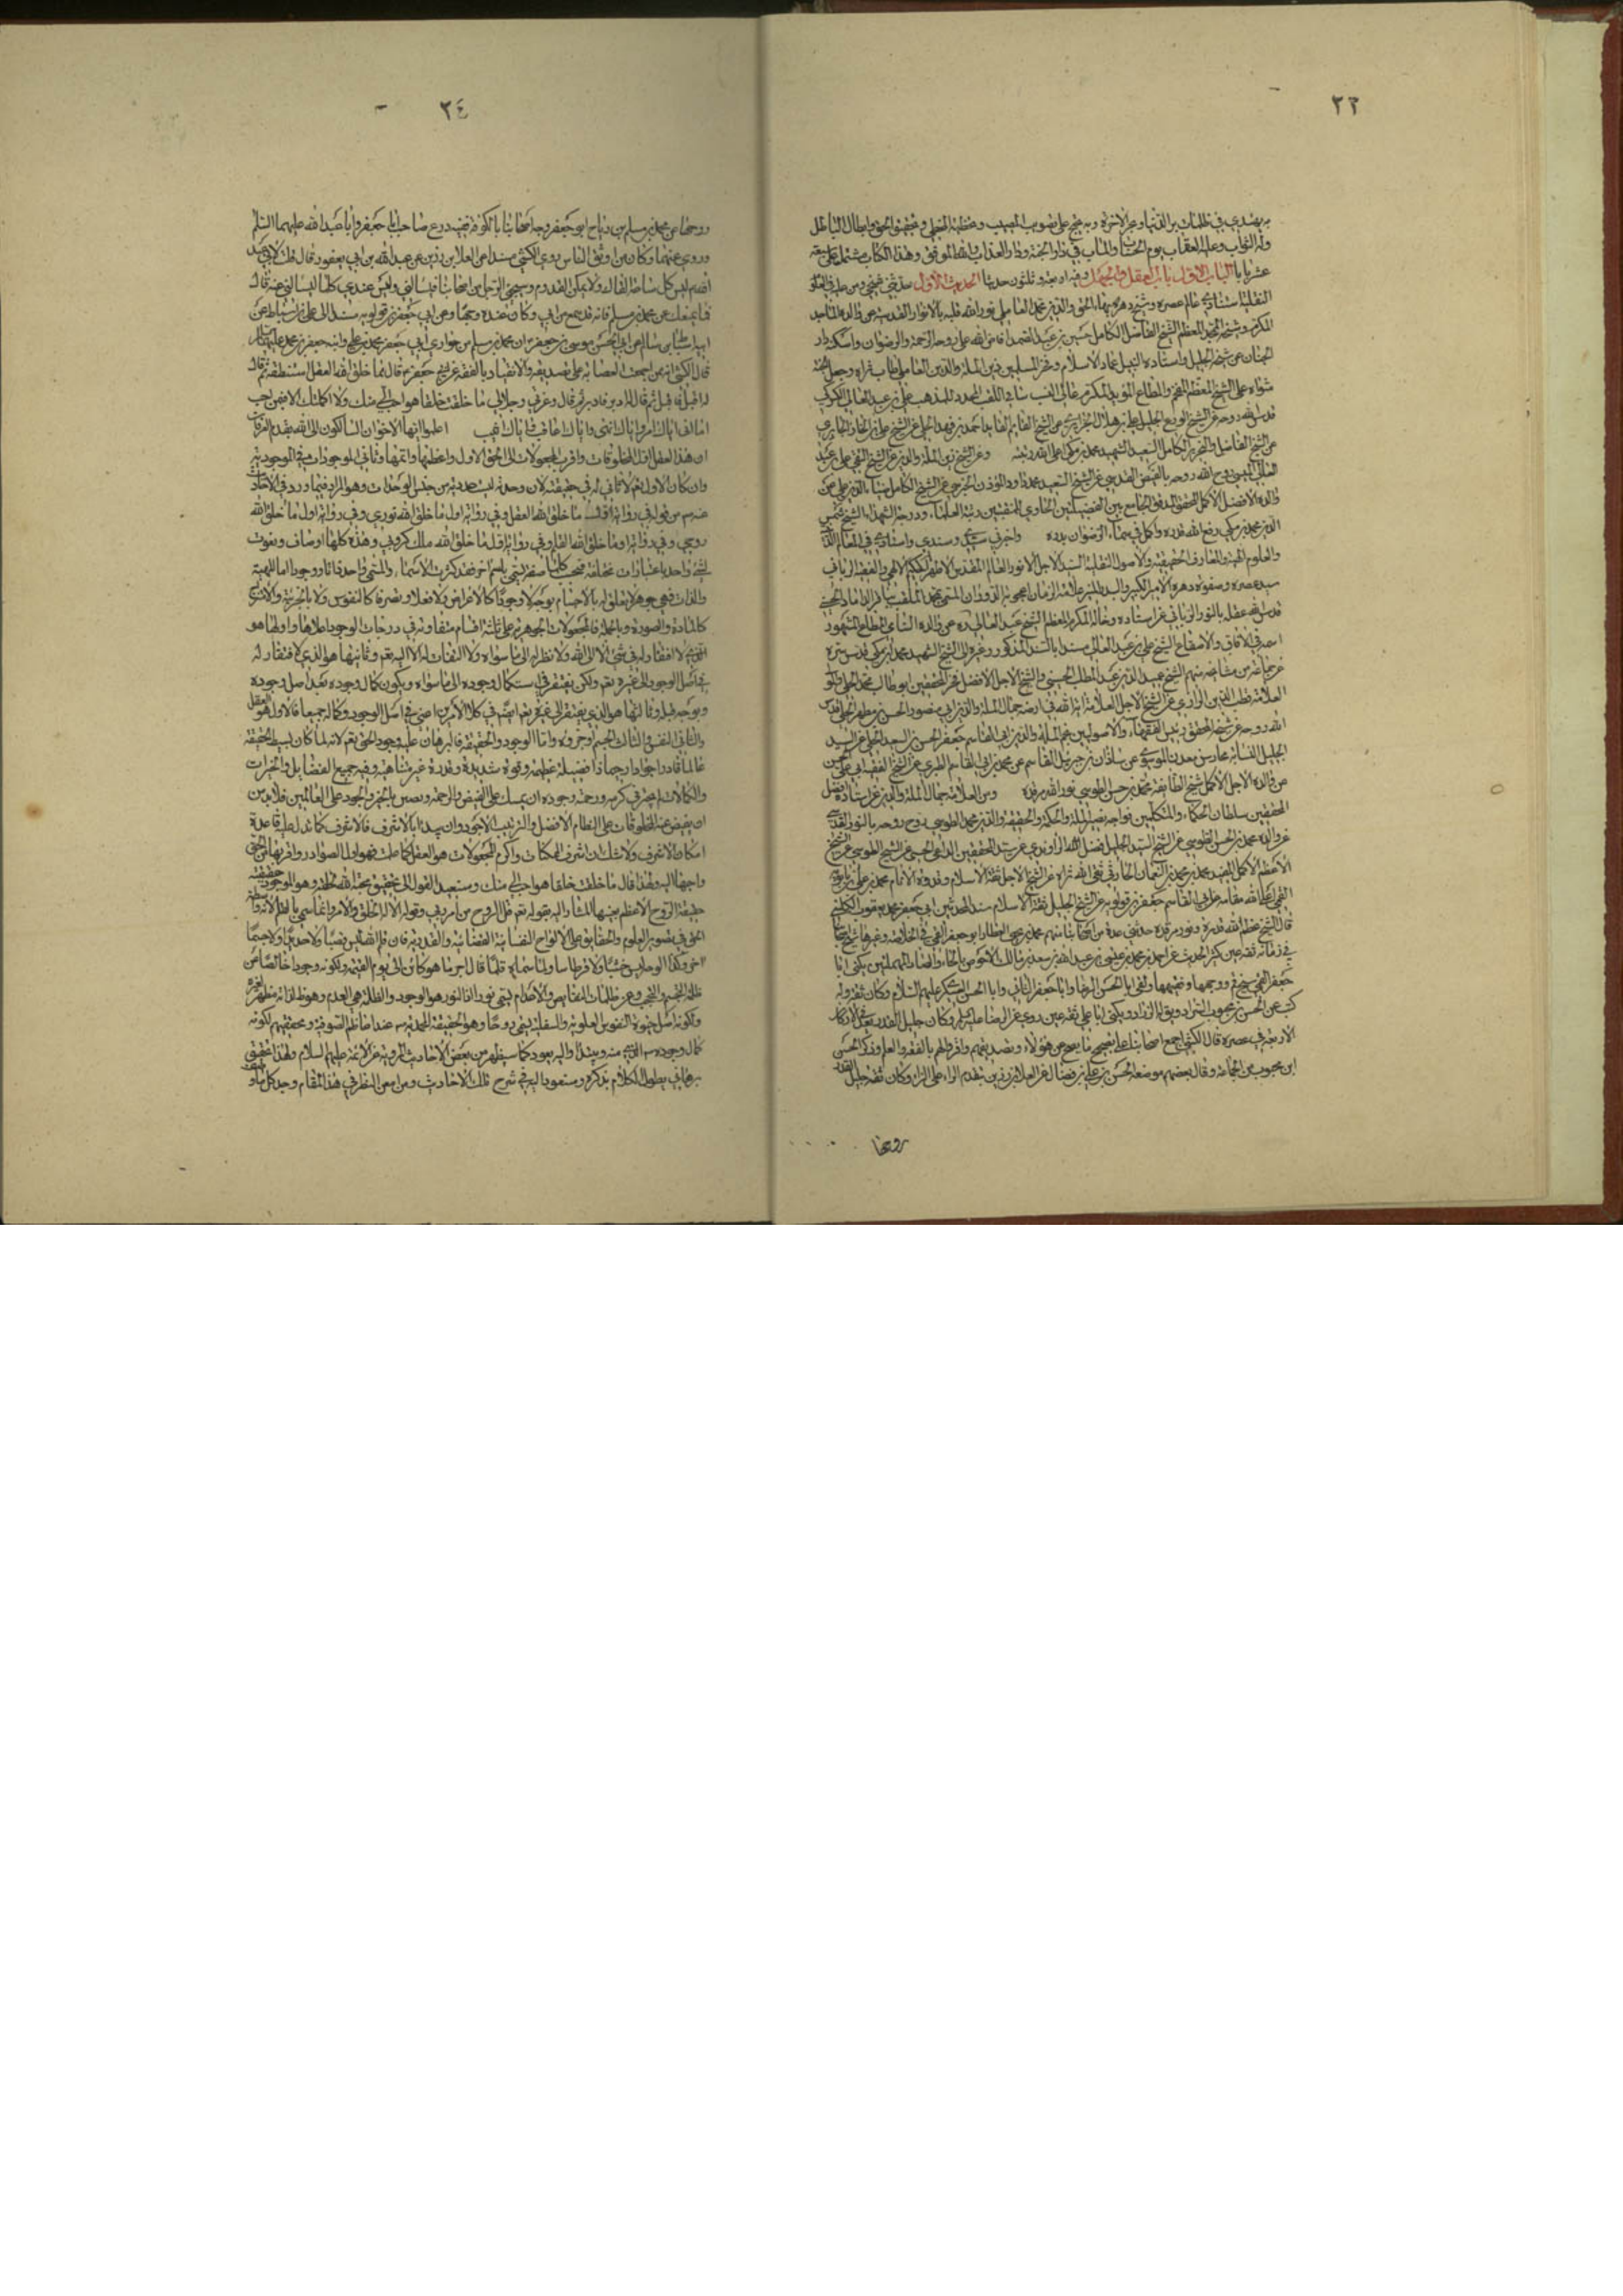 ٢٣
به يهتدي في ظلمات بر الدنيا وبحر الاخرة وبه يحتج على تصويب المصيب وتخطئة المخطي وتحقيق الحق وابطال الباطل
وله الثواب وعليه العقاب يوم الحساب والمآب في دار الجنة ودار العذاب والله الموفق وهذا الكتاب مشتمل على
عشر بابا الباب الاول باب العقل والجهل وفيه اربعة وثلثون حديثا الحديث الاول حدثني شيخي ومن عليه في العلوم
النقلية استنادي عالم عصره وشيخ دهره بهاء الحق والدين محمد العاملي نور الله قلبه بالانوار القدسية عن والده الماجد
المكرم وشيخه الممجد المعظم الشيخ الفاضل الكامل حسين بن عبد الصمد افاض الله على روحه الرحمة والرضوان واسكنه دار
الجنان عن شيخه الجليل واستاده النبيل عماد الاسلام وفخر المسلمين زين الملة والدين العاملي طاب ثراه وجعل الجنة
مثواه عن الشيخ المعظم المفخم والمطاع المؤيد المكرم عالي النسب سامي اللقب المجدد للمذهب علي بن عبد العالي الكركي
قدس الله روحه عن الشيخ الورع الجليل علي بن هلال الجزائري عن الشيخ العابد احمد بن فهد الحلي عن الشيخ علي بن الخازن الحايري
عن الشيخ الفاضل والنحرير الكامل السعيد الشهيد محمد بن مكي اعلى الله رتبته وعن الشيخ زين الملة والدين عن الشيخ التقي علي بن عبد
العالي الميسي روح الله روحه بالفيض القدسي عن الشيخ السعيد محمد بن داود المؤذن الجزيني عن الشيخ الكامل ضياء الدين علي عن
والده الافضل الاكمل المحقق المدقق الجامع بين الفضيلتين الحاوي للمنقبتين رتبة العلماء ودرجة الشهداء الشيخ شمس
الدين محمد بن مكي رفع الله قدره واكمل في سماء الرضوان بدره واخبرني سيدي وسندي واستادي في المعالم الدينية
والعلوم الالهية والمعارف الحقيقية والاصول النقلية السيد الاجل الانور العالم المقدس الاطهر الحكيم الالهي والفقيه الرباني
سيد عصره وصفوة دهره الامير الكبير والبدر المنير علامة الزمان اعجوبة الدوران المسمى بمحمد الملقب بباقر الداماد الحسيني
قدس الله عقله بالنور الرباني عن استاده وخاله المكرم المعظم الشيخ عبد العالي ره عن والده السامي المطاع المشهور
اسمه في الافاق والاصقاع الشيخ علي بن عبد العالي مسندا بالسند المذكور وغيره الى الشيخ الشهيد محمد بن مكي قدس سره
عن جماعة من مشايخه منهم الشيخ عميد الدين عبد المطلب الحسيني والشيخ الاجل الافضل فخر المحققين ابو طالب محمد الحلي والمولى
العلامة قطب الدين الرازي عن الشيخ الاجل العلامة اية الله في ارضه جمال الملة والدين ابي منصور الحسن بن مطهر الحلي قدس
الله روحه عن شيخه المحقق رئيس الفقهاء والاصوليين نجم الملة والدين ابي القاسم جعفر بن الحسن بن السعيد الحلي عن السيد
الجليل النسابة فخار بن معد الموسوي عن شاذان بن جبرئيل القمي عن محمد بن ابي القاسم الطبري عن الشيخ الفقيه ابي علي الحسن
عن والده الاجل الاكمل شيخ الطايفة محمد بن حسن الطوسي نور الله مرقده وعن العلامة جمال الملة والدين عن استاده افضل
المحققين سلطان الحكماء والمتكلمين خواجه نصير الملة والحكمة والحقيقة والدين محمد الطوسي روح روحه بالنور القدسي
عن والده محمد بن الحسن الطوسي عن الشيخ السيد الجليل فضل الله الراوندي عن سيد المحققين الداعي الحسيني عن الشيخ الطوسي عن الشيخ
الاعظم الاكمل المفيد محمد بن محمد بن النعمان الحارثي سقى الله ثراه عن الشيخ الاجل ثقة الاسلام وقدوة الانام محمد بن علي بن بابويه
القمي اعلى الله مقامه عن ابي القاسم جعفر بن قولويه عن الشيخ الجليل ثقة الاسلام سند المحدثين ابي جعفر محمد بن يعقوب الكليني
قال الشيخ عظم الله قدره ونور مرقده حدثني عدة من اصحابنا منهم محمد بن يحيى العطار ابو جعفر القمي في الخلاصة وغيرها شيخ اصحابنا
في زمانه ثقة عين كثير الحديث عن احمد بن محمد بن عيسى بن عبد الله بن سعد بن مالك الاحوص بالحاء والصاد المهملتين يكنى ابا
جعفر القمي شيخ قم ووجيهها وفقيهها ولقي ابا الحسن الرضا وابا جعفر الثاني وابا الحسن العسكري عليهم السلام وكان ثقة وله
كتب عن الحسن بن محبوب السراد ويق له الزراد ويكنى ابا علي ثقة عين روى عن الرضا عليه السلم وكان جليل القدر يعد في الاركان
الاربعة في عصره قال الكشي اجمع اصحابنا على تصحيح ما يصح عن هؤلاء وتصديقهم واقروا لهم بالفقه والعلم وذكر الحسن
ابن محبوب من الجماعة وقال بعضهم موضعه الحسن بن علي بن فضال عن العلا بن رزين بتقديم الراء على الزاء وكان ثقة جليل القدر
روجها
٢٤
وجها عن محمد بن مسلم بن رباح ابو جعفر وجه اصحابنا بالكوفة فقيه ورع صاحب ابا جعفر وابا عبد الله عليهما السلم
وروى عنهما وكان من اوثق الناس روى الكشي مسندا عن العلا بن رزين عن عبد الله بن ابي يعفور قال قلت لابي عبد
الله ع انه ليس كل ساعة القاك ولا يمكن القدوم ويجيئ الرجل من اصحابنا فيسالني وليس عندي كلما يسالني عنه قال
فما يمنعك عن محمد بن مسلم فانه قد سمع من ابي وكان عنده وجيها وعن ابي جعفر بن قولويه بسنده الى علي بن اسباط عن
ابيه اسباط بن سالم عن ابي الحسن موسى بن جعفر ان محمد بن مسلم من حواري ابي جعفر محمد بن علي وابنه جعفر بن محمد عليهما السلم
قال الكشي انه ممن اجمعت العصابة على تصديقه والانقياد له بالفقه عن ابي جعفر ع قال لما خلق الله العقل استنطقه ثم قال
له اقبل فاقبل ثم قال له ادبر فادبر ثم قال وعزتي وجلالي ما خلقت خلقا هو احب الي منك ولا اكملتك الا فيمن احب
اما انى اياك امر واياك انهى واياك اعاقب واياك اثيب اعلموا ايها الاخوان السالكون الى الله بقدم العرفان
ان هذا العقل اول المخلوقات واقرب المجعولات الى الحق الاول واعظمها واتمها وثاني الموجودات في الموجودية
وان كان الاول تعم لا ثاني له في حقيقته لان وحدته ليست عددية من جنس الوحدات وهو المراد فيما ورد في الاحاديث
عنه ص من قوله في رواية اول ما خلق الله العقل وفي رواية اول ما خلق الله نوري وفي رواية اول ما خلق الله
روحي وفي رواية اول ما خلق الله القلم وفي رواية اول ما خلق الله ملك كروبي وهذه كلها اوصاف ونعوت
لشئ واحد باعتبارات مختلفة فبحسب كل صفة يسمى باسم اخر فقد كثرت الاسماء والمسمى واحد ذاتا ووجودا اما المهية
والذات فهي جوهر لا يتعلق له بالاجسام بوجه لا وجودا كالاعراض ولا فعلا وتصرفا كالنفوس ولا بالجزئية والامتزاج
كالمادة والصورة وبالجملة فالمجعولات الجوهرية على ثلثة اقسام متفاوتة في درجات الوجود اعلاها واولها هو
الذي لا افتقار له في شئ الا الى الله ولا نظر له الى ما سواه ولا التفات له الا اليه تعم وثانيها هو الذي لا افتقار له
في اصل الوجود الى غيره تعم ولكن يفتقر في استكمال وجوده الى ما سواه ويكون كمال وجوده بعد اصل وجوده
وبوجه قبله وثالثها هو الذي يفتقر الى غيره تعم في كلا الامرين اعني في اصل الوجود وكماله جميعا فالاول هو العقل
والثاني النفس والثالث الجسم او جزوه واما الوجود والحقيقة فالبرهان عليه وجود الحق تعم لانه لما كان بسيط الحقيقة
عالما قادرا جوادا رحيما ذا فضيلة عظيمة وقوة شديدة وقدرة غير متناهية وفيه جميع الفضايل والخيرات
والكمالات لم يجز في كرمه ورحمته وجوده ان يمسك على الفيض والرحمة ويضن بالخير والجود على العالمين فلا بد من
ان يفيض عنه المخلوقات على النظام الافضل والترتيب الاجود وان يبدا بالاشرف فالاشرف كما تدل عليه قاعدة
امكان الاشرف ولا شك ان اشرف الممكنات واكرم المجعولات هو العقل كما علمت فهو اول الصوادر واقربها من الحق
واحبها اليه ولهذا قال ما خلقت خلقا هو احب الي منك وسنعيد القول الى تحقيق محبة الله لخلقه وهو الموجود حقيقة
حقيقة الروح الاعظم بعينها المشار اليه بقوله تعم قل الروح من امر ربي وقوله الا له الخلق والامر وانما سمي بالقلم لانه واسطة
الحق في تصوير العلوم والحقايق على الالواح النفسانية القضائية والقدرية فان قلم الله ليس قصبا ولا حديدا ولا جسما
اخر وكذا لوحه ليس خشبا ولا قرطاسا ولهذا سماه قلما قال اجر بما هو كائن الى يوم القيمة ولكونه وجودا خالصا عن
ظلمة التجسم والتحجب وعن ظلمات النقايص والاعدام يسمى نورا اذ النور هو الوجود والظلمة هي العدم وهو ظاهر لذاته مظهر لغيره
ولكونه اصل حيوة النفوس العلوية والسفلية يسمى روحا وهو الحقيقة المحمدية ص عند اعاظم الصوفية ومحققيهم لكونه
كمال وجوده ص الذي منه يبتدا واليه يعود كما سيظهر من بعض الاحاديث المروية عن الائمة عليهم السلام ولهذا تحقيق
برهاني يطول الكلام بذكره وستعود اليه في شرح تلك الاحاديث ومن امعن النظر في هذا المقام وجد كل ما وصف